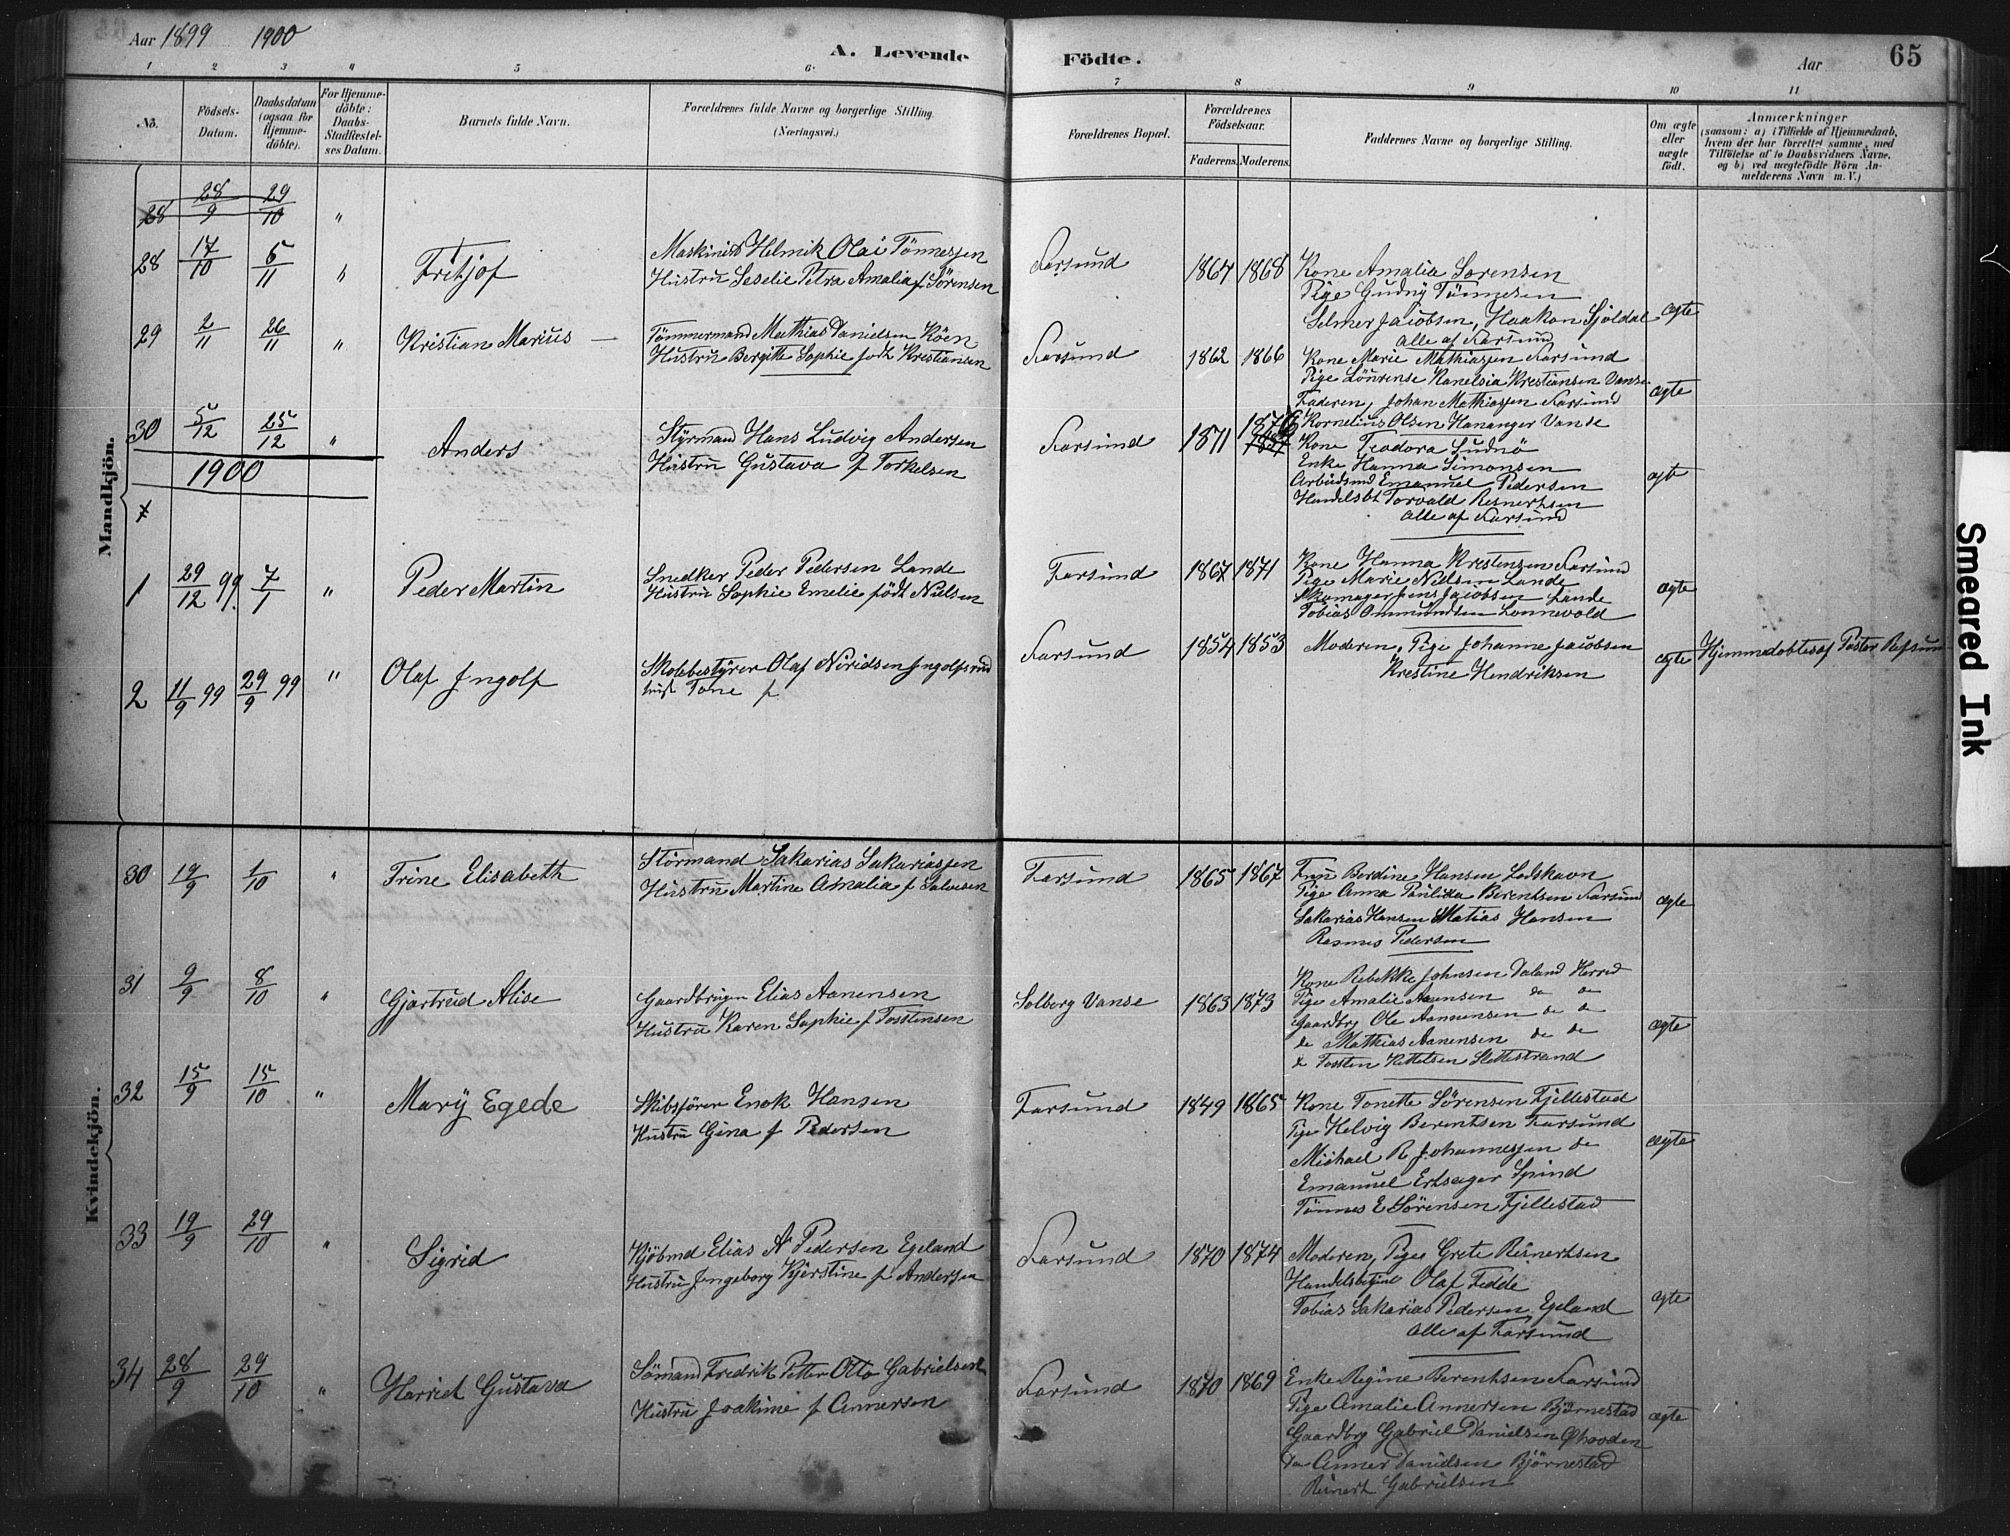 Aar 1899 1900
A. Levende Födte.
Aar
65
1 2 3 4 5 6. 7 8 9 10 11
No.
Födsels-Datum.
Daabsdatum (ogsaa for Hjemme-döbte).
For Hjemme-döbte: Daabs-Stadfæstel-ses Datum.
Barnets fulde Navn.
Forældrenes fulde Navne og borgerlige Stilling. (Næringsvei.)
Forældrenes Bopæl.
Forældrenes Födselsaar.
Faderens. Moderens.
Faddernes Navne og borgerlige Stilling.
Om ægte eller uægte födt.
Anmærkninger
(saasom: a) i Tilfælde af Hjemmedaab,
hvem der har forrettet samme, med
Tilföielse af to Daabsvidners Navne.
og b) ved uægtefödte Börn An-
melderens Navn m. V.)
Mandkjön.
28 28/9 29/10 "
28 17/10 5/11 " Fritjof
Maskinist Helmik Olai Tönnesjen
Hustru Seselie Petra Amalia f Sörensen
Farsund 1864 1868
Kone Amalia Sorensen
Pige Gudny Tönnesen
Selmer Jacobsen, Haakon Sjöldal
alle af Farsund
ægte
29 2/11 26/11 " Kristian Marius
Tömmermand Mathias Danielsen Köen
Hustru Bergitte Sophie födt Kristiansen
Farsund 1862 1866
Kone Marie Mathiasjen Farsund
Pige Löurense Kanelsia Kristiansen Vanse
Faderen, Johan Mathiasjen Farsund
Kornelius Olsen Hananger Vanse
ægte
30 5/12 25/12 " Anders
Styrmand Hans Ludvig Andersen
Hustru Gustava f Torkelsen
Farsund 1871 1876
Kone Teodora Sudnö
Enke Hanna Simonsen
Arbeidsmd Emanuel Pedersen
Handelsbt Torvald Reinertsen
alle af Farsund
ægte
1900
1 29/12 99. 7/1 " Peder Martin
Snedker Peder Pedersen Lande
Hustru Sophie Emelie födt Nielsen
Farsund 1867 1871
Kone Hanna Kristensen Farsund
Pige Marie Nielsen Lande
Skomager Jens Jacobsen Lande
Tobias Ommundsen Lonnevold
ægte
2 11/9 99 29/9 99 " Olaf Ingolf
Skolebestyrer Olaf Niridsen Ingolfsrud
Hust Tone f.
Farsund 1854 1853
Moderen, Pige Johanne Jacobsen
Kristine Hendriksen
ægte
Hjemmedöbtes af Pastor Refsum
Kvindekjön.
30 19/9 1/10 " Trine Elisabeth
Störmand Sakarias Sakariasjen
Hustru Martine Amalia f Salvesen
Farsund 1865 1867
Frue Berdine Hansen Loshavn
Pige Anna Paulida Berentsen Farsund
Sakarias Hansen Matias Hansen
Rasmus Pedersen
ægte
31 9/9 8/10 " Gjartrud Alise
Gaardbruger Elias Aanensen
Hustru Karen Sophie f Tosstensen
Solberg Vanse 1863 1873
Kone Rebekke Johnsen Daland Herred
Pige Amalie Aanensen do do
Gaardbrg Ole Aanensen do do
do Mathias Aanensen do do
do Tossten Kittelsen Slettestrand
ægte
32 15/9 15/10 " Mary Egede
Skibsförer Enok Hansen
Hustru Gina f Pedersen
Farsund 1849 1865
Kone Tonette Sörensen Fjellestad
Pige Helvig Berentsen Farsund
Michael R Johannesjen do
Emanuel Ertzeger Spind
Tönnes E Sörensen Fjellestad
ægte
33 19/9 29/10 " Sigrid
Kjöbmd Elias A Pedersen Egeland
Hustru Ingeborg Kjerstine f Andersen
Farsund 1870 1874
Moderen, Pige Grete Reinertsen
Handelsbetjent Olaf Fedde
Tobias Sakarias Pedersen, Egeland
alle af Farsund
ægte
34 28/9 29/10 " Harriet Gustava
Sömand Fredrik Petter Otto Gabrielsen
Hustru Joakime f Annersen
Farsund 1870 1869
Enke Regine Berentsen Farsund
Pige Amalie Annersen Björnestad
Gaardbrg Gabriel Danielsen
do Anner Danielsen Björnestad
Reinert Gabrielsen
ægte
Smeared Ink